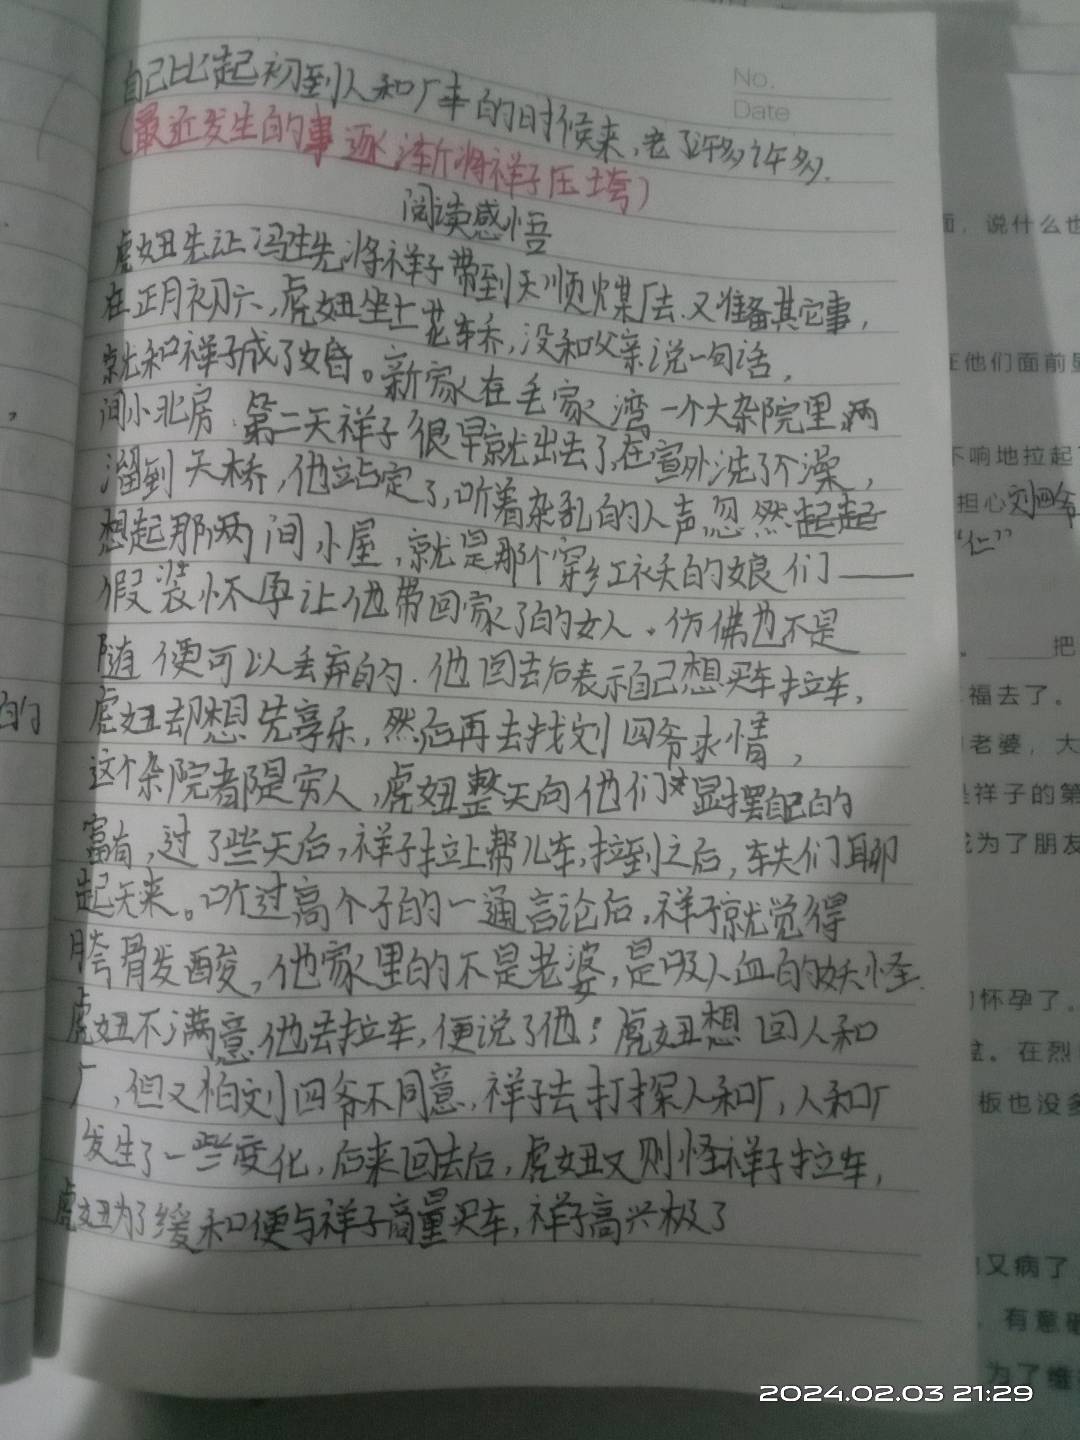 No.
Date
自己比起初到人和厂车的时候来,老了许多许多.
(最近发生的事逐渐将祥子压垮)
阅读感悟
虎妞先让冯先生将祥子带到天顺煤厂去.又准备其它事,
在正月初六、虎妞坐上花车乔,没和父亲说一句话,
就和祥子成了婚。新家在毛家湾一个大杂院里,两
间小北房.第二天祥子很早就出去了,在窗外洗了个澡,
溜到天桥,他站定了,听着杂乱的人声,忽然起起
想起那两间小屋,就是那个穿红袄的娘们——
假装怀孕让他带回家了的女人。仿佛也不是
随便可以丢弃的.他回去后表示自己想买车拉车,
虎妞却想先享乐,然后再去找刘四爷求情,
这个杂院都是穷人,虎妞整天向他们显摆自己的
富有,过了些天后,祥子拉上帮儿车,拉到之后,车夫们聊
起天来。听过高个子的一通言论后,祥子就觉得
胯骨发酸,他家里的不是老婆,是吸人血的妖怪.
虎妞不满意他去拉车,便说了他;虎妞想回人和
厂,但又怕刘四爷不同意,祥子去打探人和厂,人和厂
发生了一些变化,后来回去后,虎妞又则怪祥子拉车,
虎妞为了缓和便与祥子商量买车,祥子高兴极了
的
面,说什么也
在他们面前显
不响地拉起
担心刘四爷
“仁”
把
福去了。
老婆,大
是祥子的第
成为了朋友
怀孕了.
盆。在烈
板也没多
又病了
有意
为了维
2024.02.03 21:29